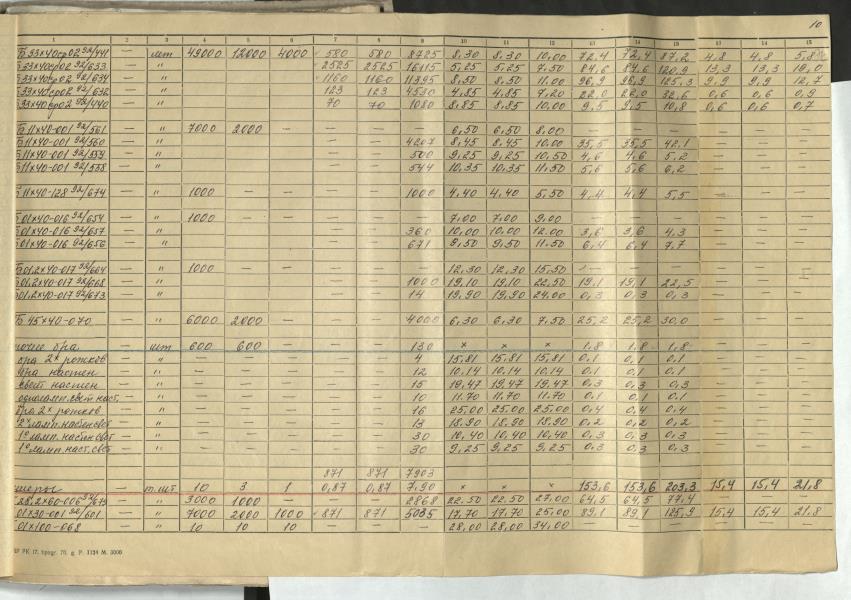 10
1 2 3 4 5 6 7 8 9 10 11 12 13 14 15 13 14 15
Б 33х40ср02 92/441 — шт 49000 12000 4000 580 580 8725 8,30 8,30 10,00 72,4 72,4 87,2 4,8 4,8 5,8
Б 33х40ср02 92/633 — " 2525 2525 16115 5,25 5,25 7,50 84,6 84,6 120,9 13,3 13,3 19,0
Б 33х40ср02 92/634 — " 1160 1160 11395 8,50 8,50 11,00 96,9 96,9 125,3 9,9 9,9 12,7
Б 33х40ср02 92/632 — " 123 123 4530 4,85 4,85 7,20 22,0 22,0 32,6 0,6 0,6 0,9
Б 33х40ср02 92/440 — " 70 70 1080 8,85 8,85 10,00 9,5 9,5 10,8 0,6 0,6 0,7
Б 11х40-001 92/561 — " 7000 2000 — — — — 6,50 6,50 8,00 — — — — — —
Б 11х40-001 92/560 — " — — 4207 8,45 8,45 10,00 35,5 35,5 42,1 — — —
Б 11х40-001 92/559 — " — — 500 9,25 9,25 10,50 4,6 4,6 5,2 — — —
Б 11х40-001 92/558 — " — — 544 10,35 10,35 11,50 5,6 5,6 6,2 — — —
Б 11х40-128 92/674 — " 1000 — — — — 1000 4,40 4,40 5,50 4,4 4,4 5,5 — — —
Б 01х40-016 92/654 — " 1000 — — — — — 7,00 7,00 9,00 — — — — — —
Б 01х40-016 92/657 — " — — 360 10,00 10,00 12,00 3,6 3,6 4,3 — — —
Б 01х40-016 92/656 — " — — 671 9,50 9,50 11,50 6,4 6,4 7,7 — — —
Б 01,2х40-017 92/664 — " 1000 — — — — — 12,30 12,30 15,50 — — — — — —
Б 01,2х40-017 92/668 — " — — 1000 19,10 19,10 22,50 19,1 19,1 22,5 — — —
Б 01,2х40-017 92/673 — " — — 14 19,90 19,90 24,00 0,3 0,3 0,3 — — —
Б 45х40-070 — " 6000 2000 — — — 4000 6,30 6,30 7,50 25,2 25,2 30,0 — — —
прочие бра — шт 600 600 — — — 130 х х х 1,8 1,8 1,8 — — —
бра 2х рожков — " — — — — — 4 15,81 15,81 15,81 0,1 0,1 0,1 — — —
бра настен — " — — — — — 12 10,14 10,14 10,14 0,1 0,1 0,1 — — —
свет настен — " — — — — — 15 19,47 19,47 19,47 0,3 0,3 0,3 — — —
одноламп. свет наст. — " — — — — — 10 11,70 11,70 11,70 0,1 0,1 0,1 — — —
бра 2х рожков — " — — — — — 16 25,00 25,00 25,00 0,4 0,4 0,4 — — —
2х ламп. настен свет — " — — — — — 13 18,90 18,90 18,90 0,2 0,2 0,2 — — —
1о ламп. настен свет — " — — — — — 30 10,40 10,40 10,40 0,3 0,3 0,3 — — —
1о ламп. наст. свет — " — — — — — 30 9,25 9,25 9,25 0,3 0,3 0,3 — — —
871 871 7903
— т.шт 10 3 1 0,87 0,87 7,90 х х х 153,6 153,6 203,3 15,4 15,4 21,8
28,2х60-006 92/675 — " 3000 1000 — — — 2868 22,50 22,50 27,00 64,5 64,5 77,4 — — —
01х30-001 92/601 — " 7000 2000 1000 871 871 5035 17,70 17,70 25,00 89,1 89,1 125,9 15,4 15,4 21,8
01х100-068 — " 10 10 10 — — — 28,00 28,00 34,00 — — — — — —
РК 17. прогр. 70. g. P. 1124 M. 3000